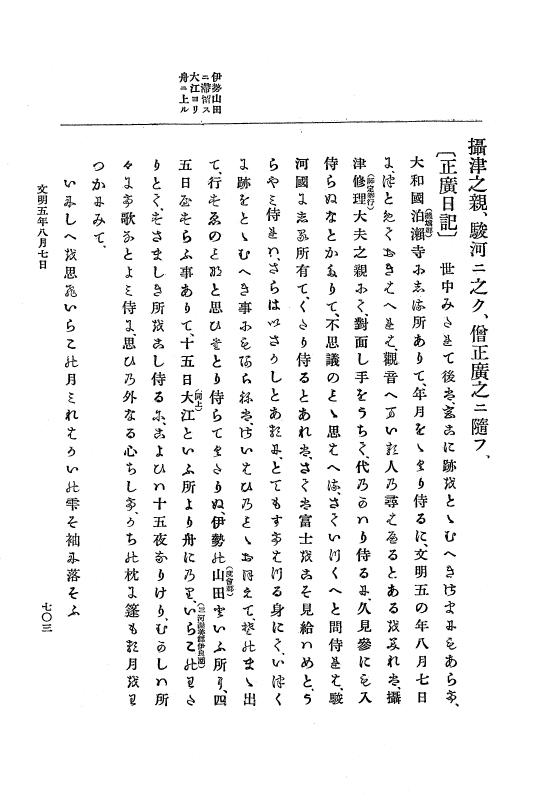 伊勢山田
ニ滯留ス
大江ヨリ
舟ニ上ル
攝津之親、駿河ニ之ク、僧正廣之ニ隨フ、
〔正廣日記〕 世中みたれて後は、さらに跡をとゝむへきさまにもあらす、
大和國泊瀬寺に(磯城郡)しる所ありて、年月をゝくり侍るに文明五の年八月七日
に、觀音へまいる人の尋きたるとあるをみれは、攝
津修理大夫之親にて、對面し手をうちて、代のかはり侍るに、久見參に入
侍らぬなとかたりて、不思議のよし思、さていつくへと問侍れは、駿
河國にしる所有て、くたり侍るとあれは、さては富士をこそ見給はめと、う
らやみ侍れは、さらはいさうしとあるに、とてもすてける身にて、いつく
に跡をとゝむへき事にもあらねは、おほえて、そのまゝ出
て、行すゑのと思ひ侍らて、伊勢の山田(度會郡)といふ所に、四
五日やすらふ事ありて、十五日大江(同上)といふ所より舟にのり、いらこのわた
りとて、すさましき所をこし侍るに、こよひは十五夜なりけり、むかしの所
々にて歌なとよみ侍し、思ひの外なる心ちして、うちの枕に篷もる月を
つかにみて、
いにしへを思ひいらこの月みれはかいの雫そ袖に落そふ
文明五年八月七日
七〇三